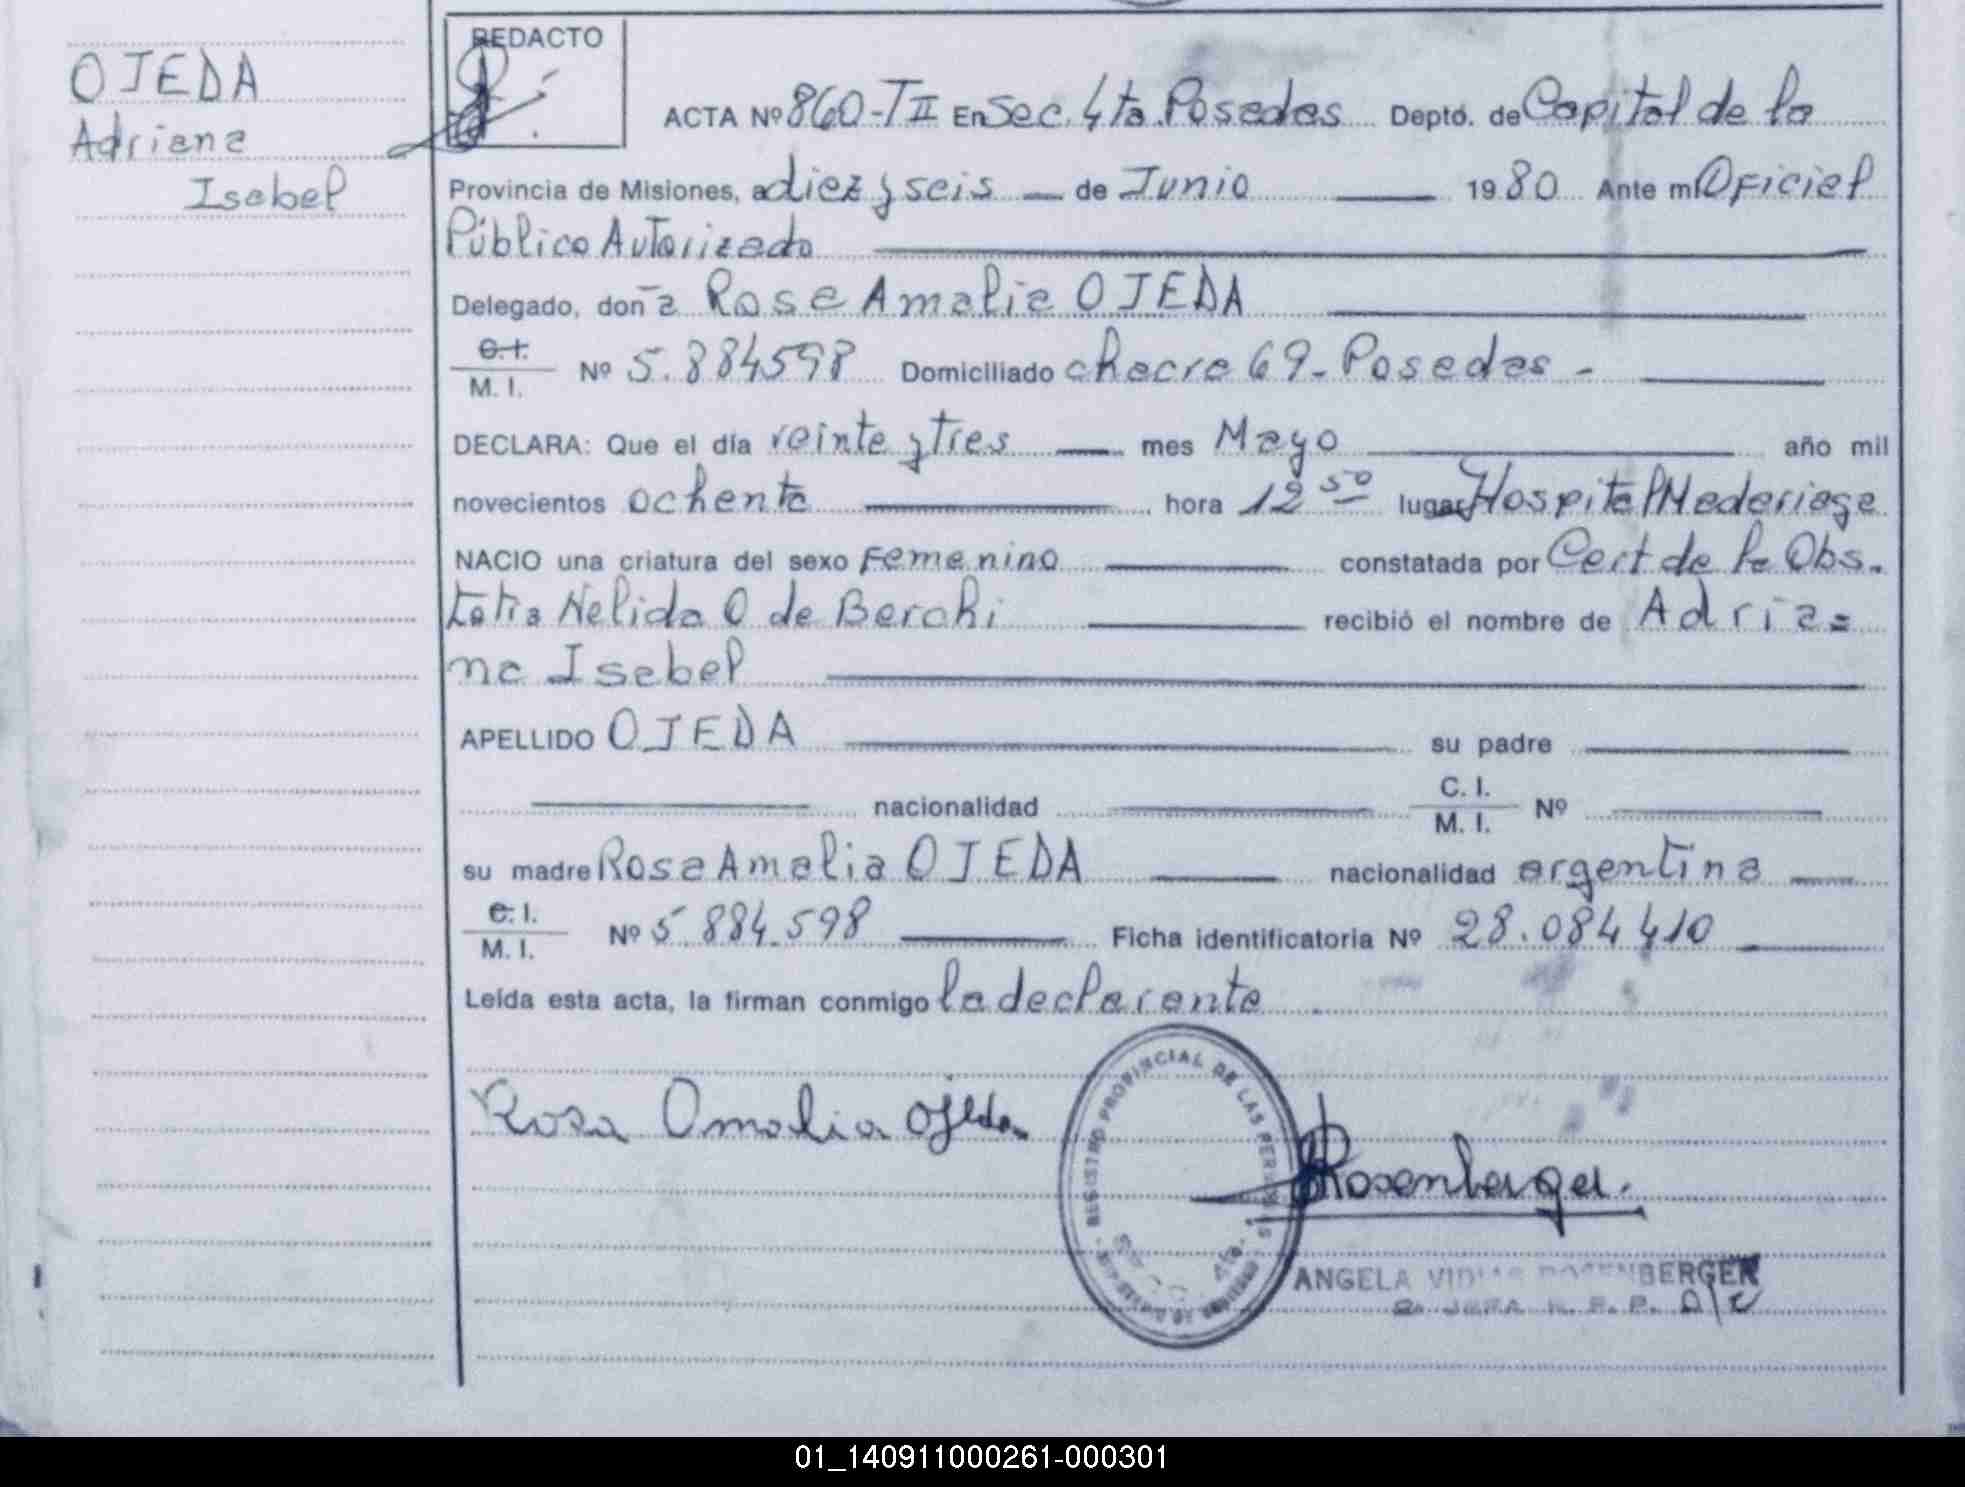 OJEDA
Adriana
Isabel
REDACTO
ACTA Nº 860-TII En Sec. 4ta. Posadas Depto. de Capital de la
Provincia de Misiones, a diez y seis — de Junio — 1980 Ante mí Oficial
Público Autorizado
Delegado, don̄a Rosa Amalia OJEDA
C.I.
M. I. Nº 5.884598 Domiciliado chacra 69-Posadas -
DECLARA: Que el día veinte y tres — mes Mayo — año mil
novecientos ochenta — hora 12 50 lugar Hospital Madariaga
NACIO una criatura del sexo Femenino — constatada por Cert de la Obs.
tetra Nelida O de Berchi — recibió el nombre de Adria=
na Isabel
APELLIDO OJEDA — su padre —
— nacionalidad — C. I.
M. I. Nº —
su madre Rosa Amalia OJEDA — nacionalidad argentina —
C. I.
M. I. Nº 5.884.598 — Ficha identificatoria Nº 28.084410 —
Leída esta acta, la firman conmigo la declarante
REGISTRO PROVINCIAL DE LAS PERSONAS
Rosa Amalia Ojeda
Rosenberger.
ANGELA ROSENBERGER
JEFA R. P. P. A/C
01_140911000261-000301